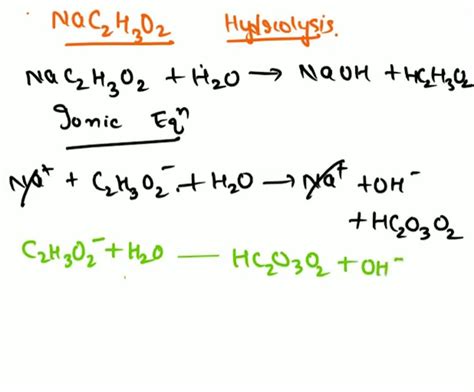 NaC2H3O2 Hydrolysis.
NaC2H3O2 + H2O → NaOH + HC2H3O2
Ionic Eqn
Na+ + C2H3O2- + H2O → Na+ + OH-
+ HC2O3O2
C2H3O2- + H2O — HC2O3O2 + OH-